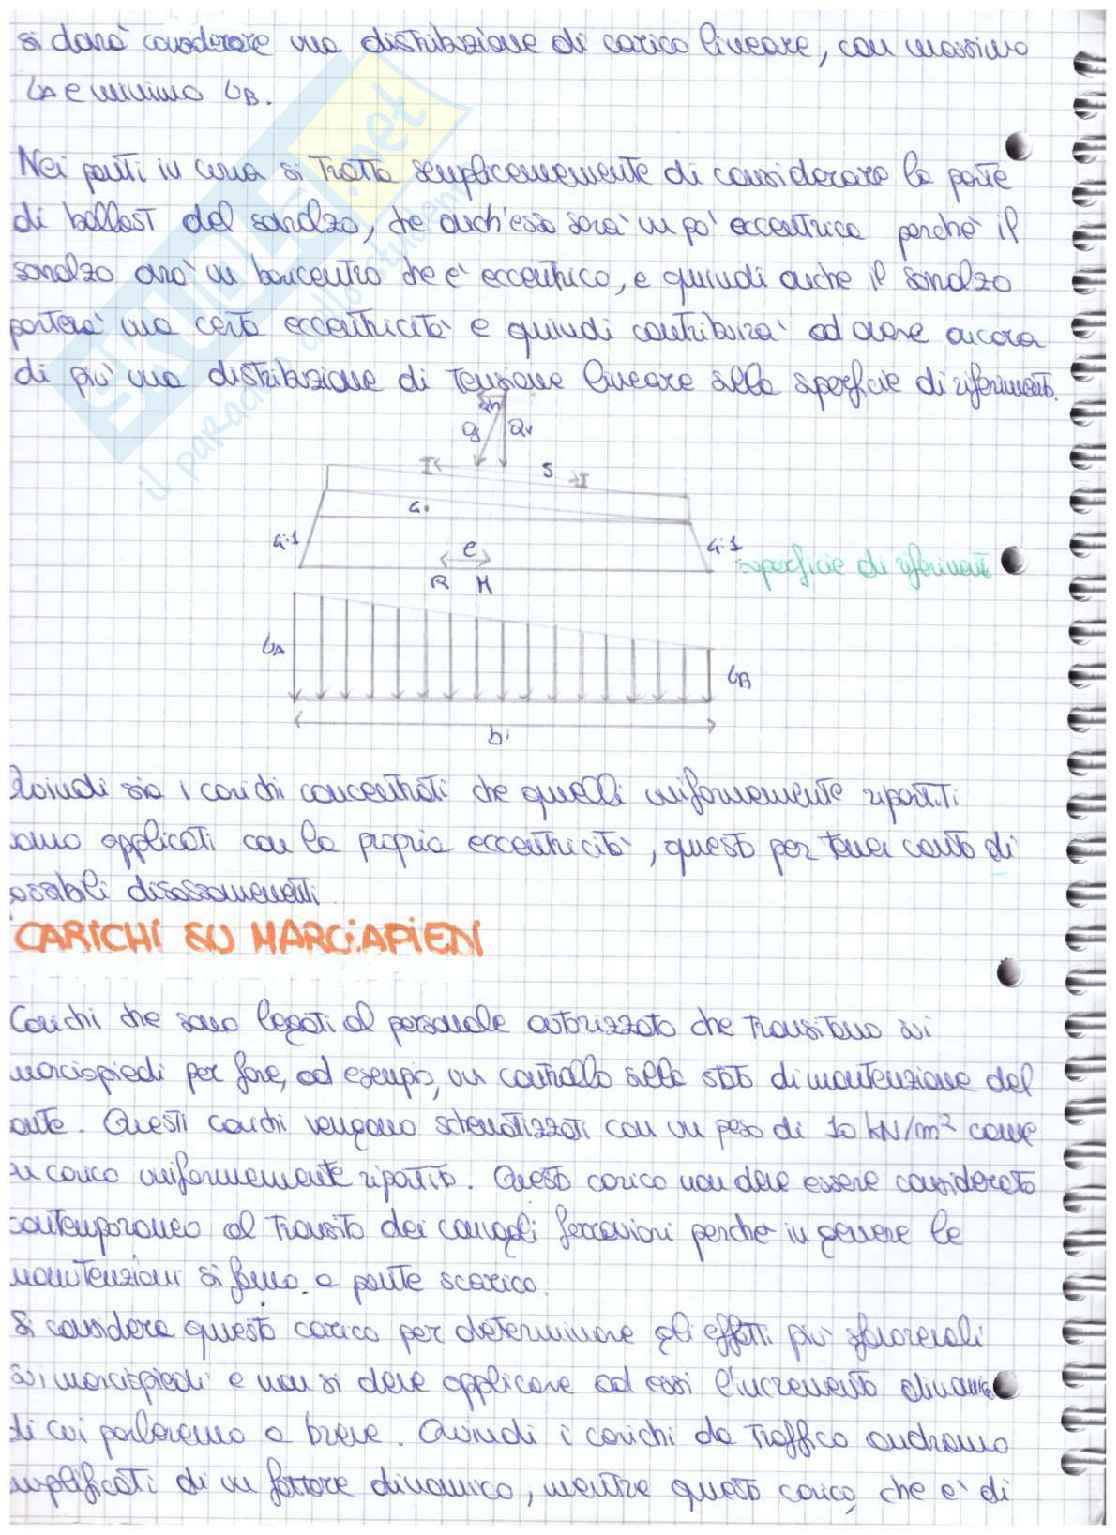 si dovrà considerare una distribuzione di carico lineare, con massimo
σA e minimo σB.
Nei ponti in curva si tratta semplicemente di considerare la parte
di ballast del sovralzo, che anch'essa sarà un po' eccentrica perchè il
sovralzo avrà un baricentro che è eccentrico, e quindi anche il sovralzo
porterà una certa eccentricità e quindi contribuirà ad avere ancora
di più una distribuzione di tensione lineare sulla superficie di riferimento.
Qh
Q Qv
S
4:1
e
4:1
superficie di riferimento
R M
σA
σB
b'
Quindi sia i carichi concentrati che quelli uniformemente ripartiti
sono applicati con la propria eccentricità, questo per tener conto di
possibili disassamenti.
CARICHI SU MARCiAPiEDI
Carichi che sono legati al personale autorizzato che transitano sui
marciapiedi per fare, ad esempio, un controllo sullo stato di manutenzione del
ponte. Questi carichi vengono schematizzati con un peso di 10 kN/m² come
un carico uniformemente ripartito. Questo carico non deve essere considerato
contemporaneo al transito dei convogli ferroviari perchè in genere le
manutenzioni si fanno a ponte scarico.
Si considera questo carico per determinare gli effetti più sfavorevoli
sui marciapiedi e non si deve applicare ad essi l'incremento dinamico
di cui parleremo a breve. Quindi i carichi da traffico andranno
amplificati di un fattore dinamico, mentre questo carico, che è di
SKUOLA.net
il paradiso dello studente